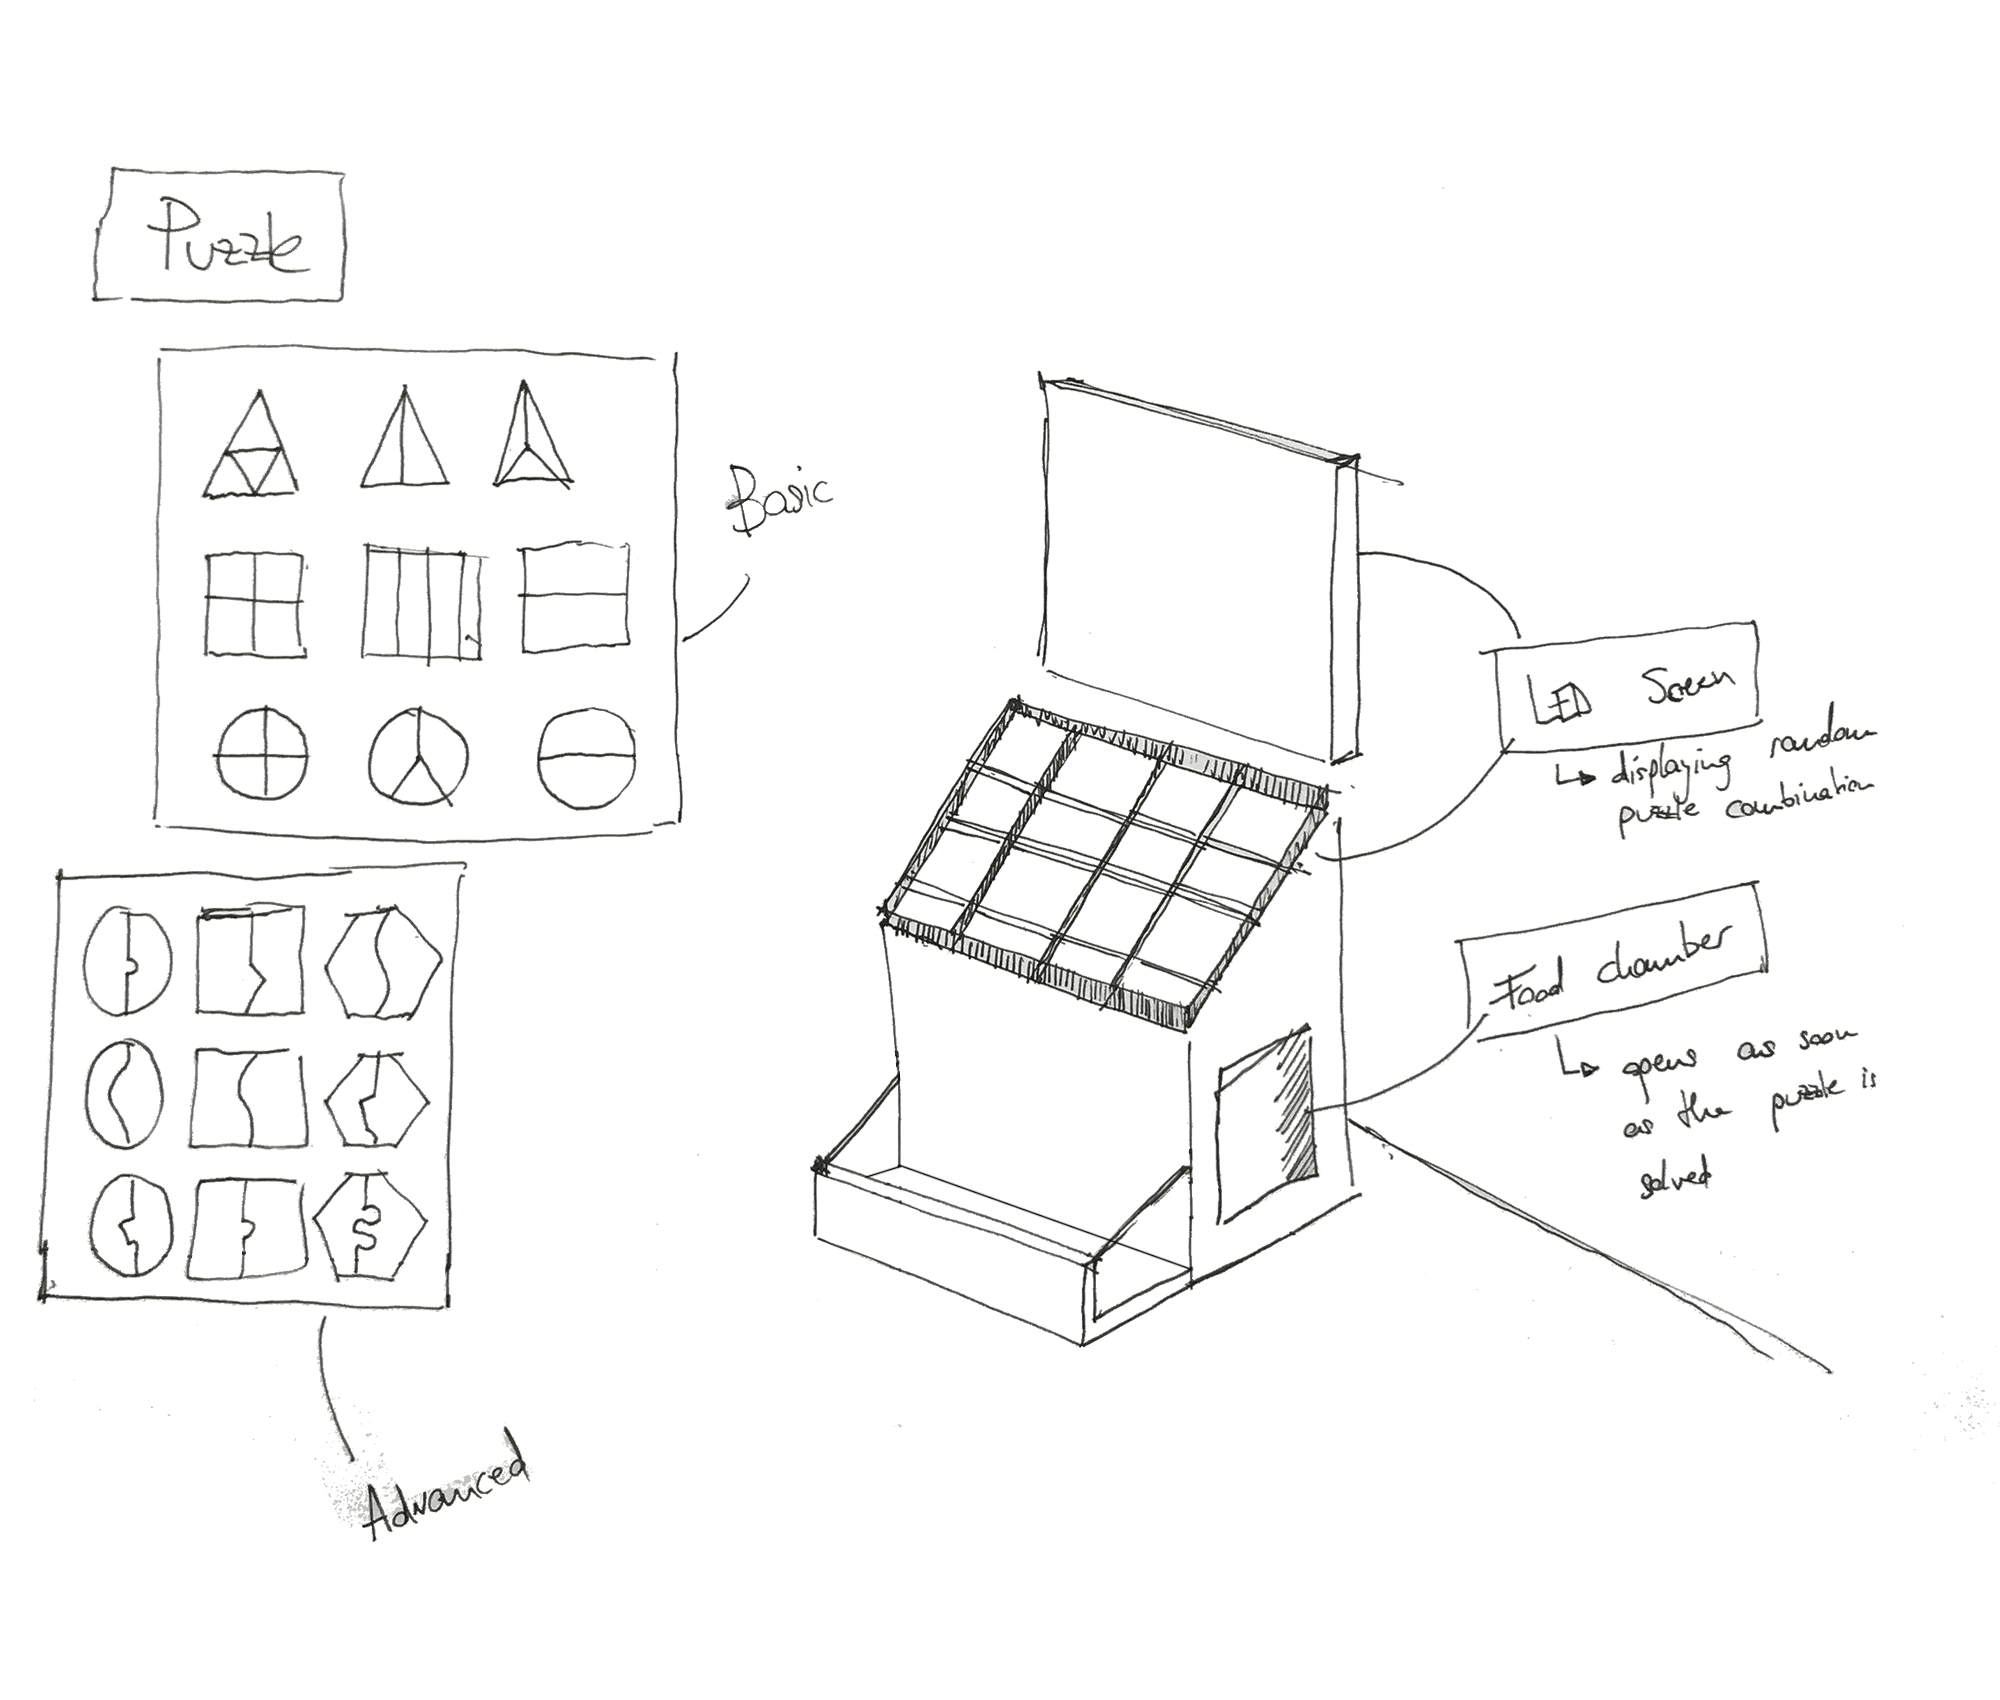 Puzzle
Basic
Advanced
LED Screen
displaying random
puzzle combination
Food chamber
opens as soon
as the puzzle is
solved